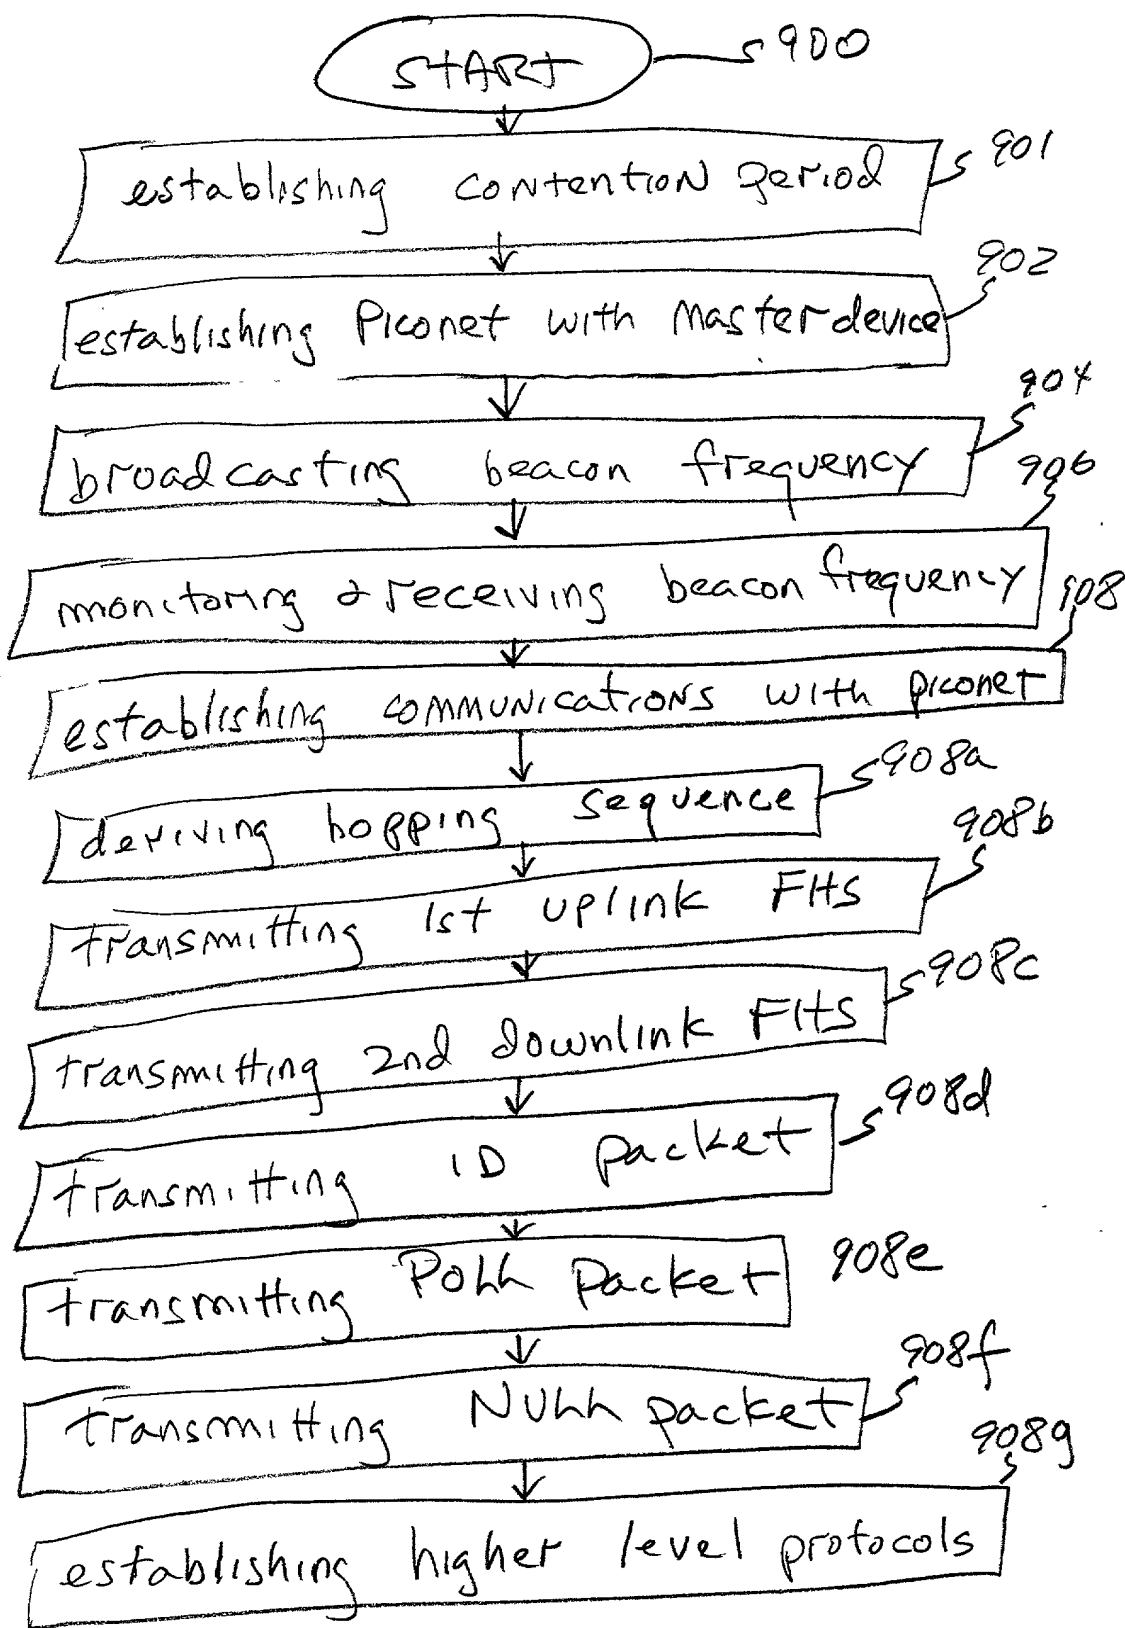 START 900
establishing contention period 901
902
establishing Piconet with Master device
904
broadcasting beacon frequency
906
monitoring & receiving beacon frequency
908
establishing communications with piconet
908a
deriving hopping sequence
908b
transmitting 1st uplink FHS
908c
transmitting 2nd downlink FHS
908d
transmitting ID packet
transmitting POLL packet 908e
908f
transmitting NULL packet
908g
establishing higher level protocols